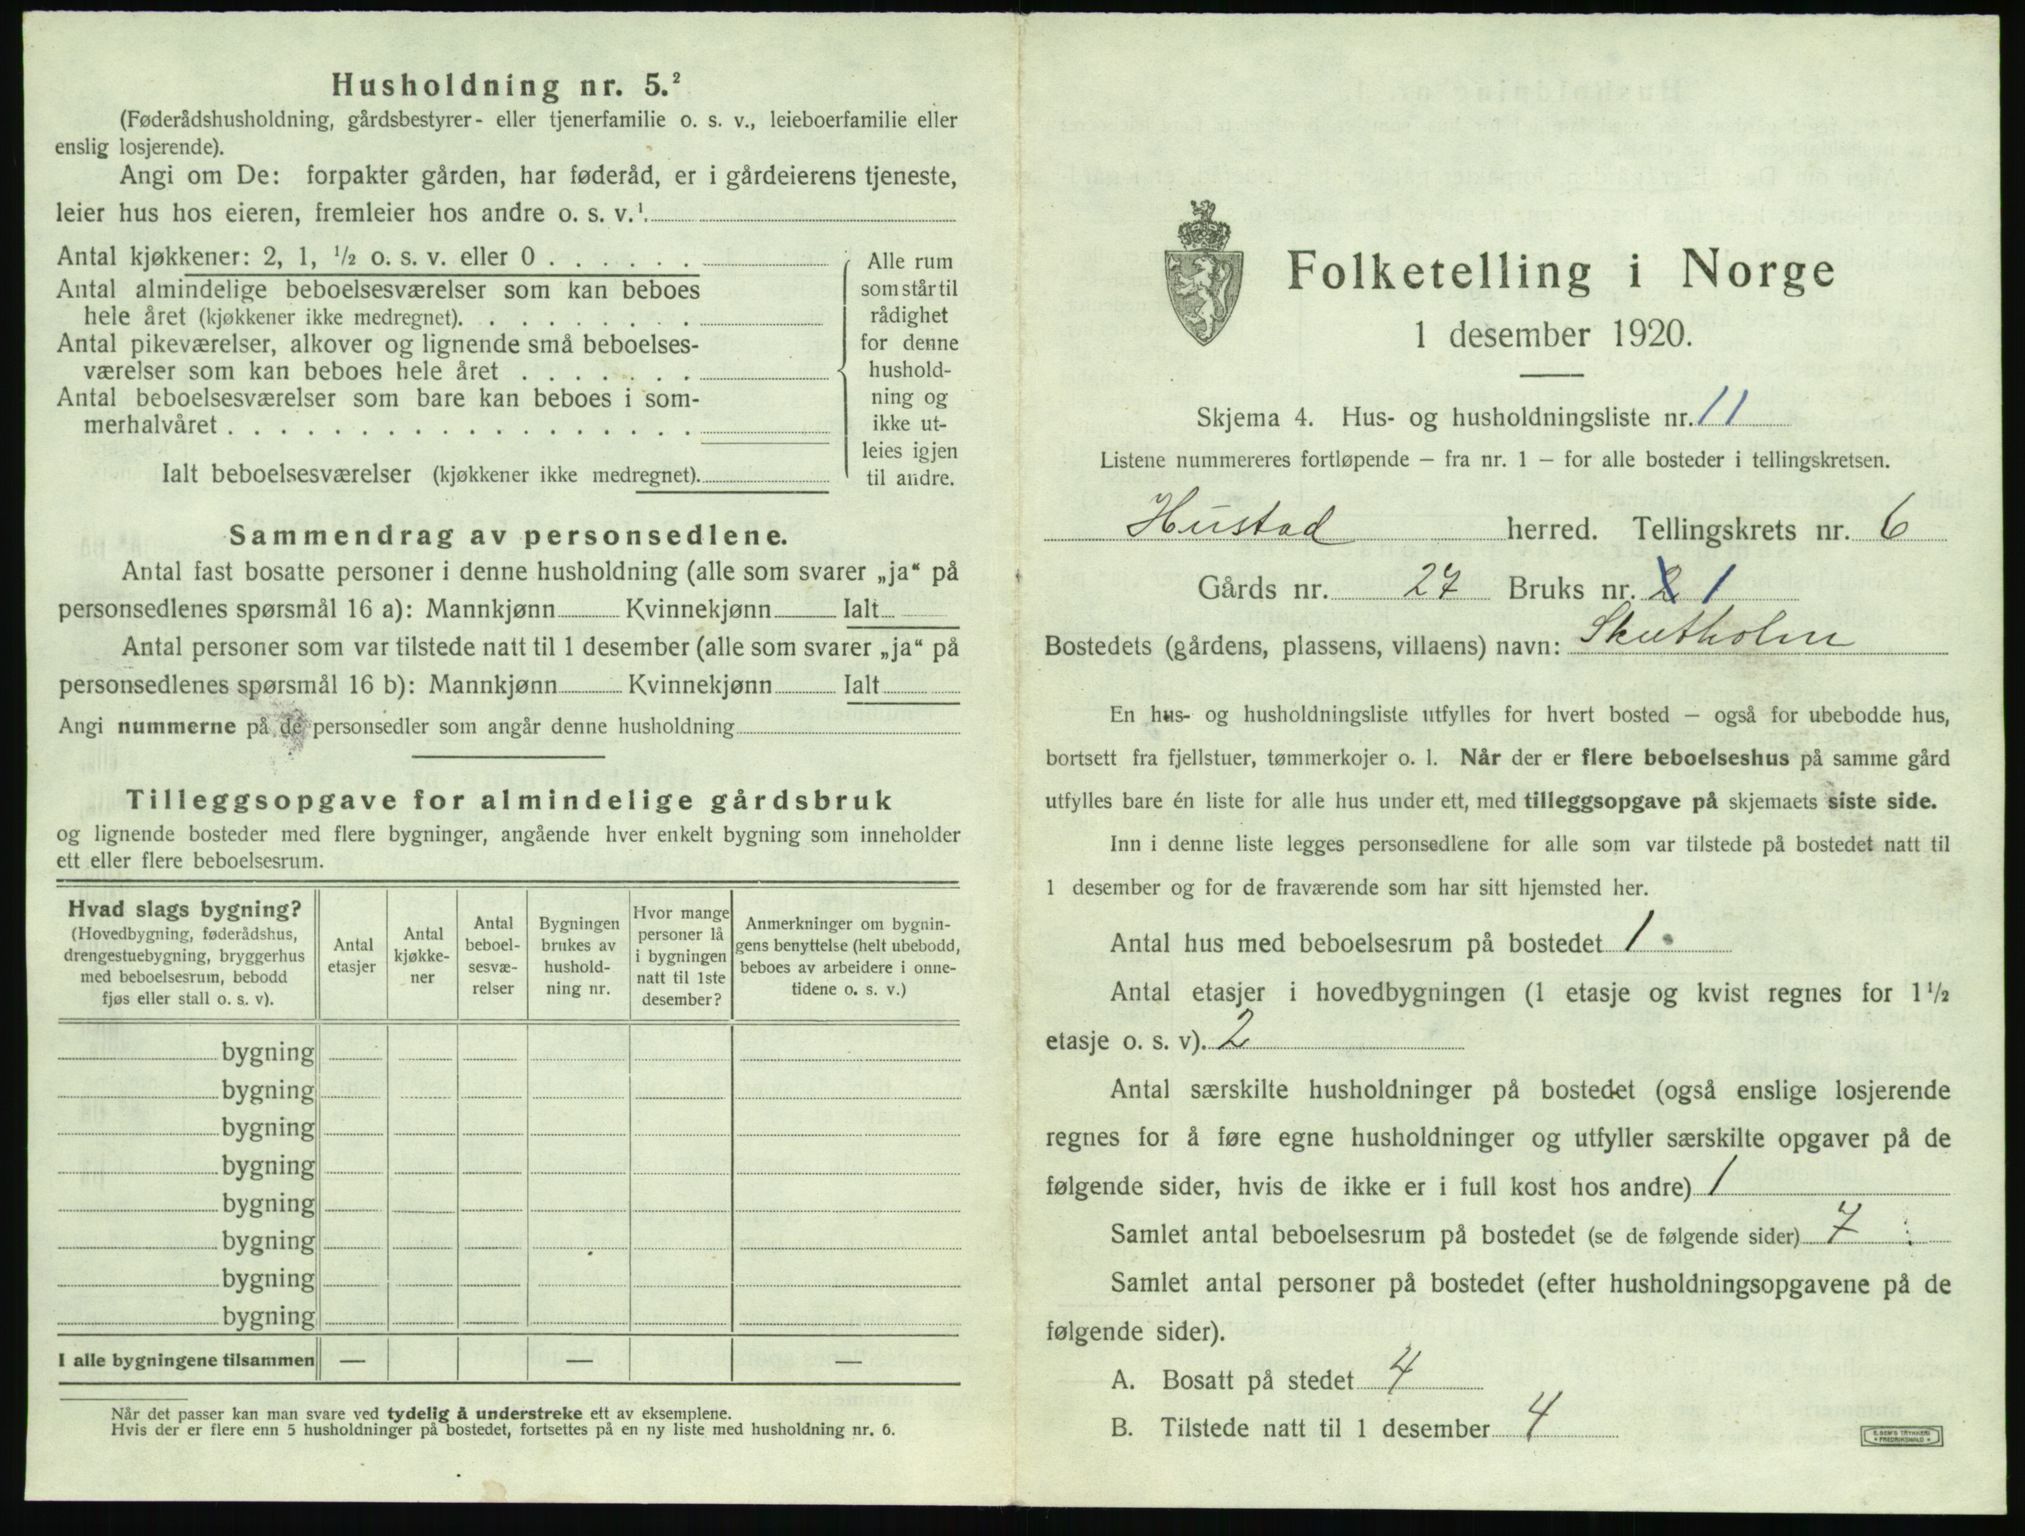 Husholdning nr. 5.²
(Føderådshusholdning, gårdsbestyrer- eller tjenerfamilie o. s. v., leieboerfamilie eller
enslig losjerende).
Angi om De: forpakter gården, har føderåd, er i gårdeierens tjeneste,
leier hus hos eieren, fremleier hos andre o. s. v.¹
Antal kjøkkener: 2, 1, ½ o. s. v. eller 0 . . . . . .
Antal almindelige beboelsesværelser som kan beboes
hele året (kjøkkener ikke medregnet). . . . . . . . .
Antal pikeværelser, alkover og lignende små beboelses-
værelser som kan beboes hele året . . . . . . .
Antal beboelsesværelser som bare kan beboes i som-
merhalvåret . . . . . . . . . . . . . . . . . .
Ialt beboelsesværelser (kjøkkener ikke medregnet).
Alle rum
som står til
rådighet
for denne
hushold-
ning og
ikke ut-
leies igjen
til andre.
Sammendrag av personsedlene.
Antal fast bosatte personer i denne husholdning (alle som svarer „ja“ på
personsedlenes spørsmål 16 a): Mannkjønn Kvinnekjønn Ialt
Antal personer som var tilstede natt til 1 desember (alle som svarer „ja“ på
personsedlenes spørsmål 16 b): Mannkjønn Kvinnekjønn Ialt
Angi nummerne på de personsedler som angår denne husholdning
Tilleggsopgave for almindelige gårdsbruk
og lignende bosteder med flere bygninger, angående hver enkelt bygning som inneholder
ett eller flere beboelsesrum.
Hvad slags bygning?
(Hovedbygning, føderådshus,
drengestuebygning, bryggerhus
med beboelsesrum, bebodd
fjøs eller stall o. s. v).
Antal
etasjer
Antal
kjøkke-
ner
Antal
beboel-
sesvæ-
relser
Bygningen
brukes av
hushold-
ning nr.
Hvor mange
personer lå
i bygningen
natt til 1ste
desember?
Anmerkninger om bygnin-
gens benyttelse (helt ubebodd,
beboes av arbeidere i onne-
tidene o. s. v.)
bygning
bygning
bygning
bygning
bygning
bygning
bygning
bygning
I alle bygningene tilsammen — — —
Når det passer kan man svare ved tydelig å understreke ett av eksemplene.
Hvis der er flere enn 5 husholdninger på bostedet, fortsettes på en ny liste med husholdning nr. 6.
Folketelling i Norge
1 desember 1920.
Skjema 4. Hus- og husholdningsliste nr. 11
Listene nummereres fortløpende – fra nr. 1 – for alle bosteder i tellingskretsen.
Hustad herred. Tellingskrets nr. 6
Gårds nr. 27 Bruks nr. 2 1
Bostedets (gårdens, plassens, villaens) navn: Skutholm
En hus- og husholdningsliste utfylles for hvert bosted – også for ubebodde hus,
bortsett fra fjellstuer, tømmerkojer o. l. Når der er flere beboelseshus på samme gård
utfylles bare én liste for alle hus under ett, med tilleggsopgave på skjemaets siste side.
Inn i denne liste legges personsedlene for alle som var tilstede på bostedet natt til
1 desember og for de fraværende som har sitt hjemsted her.
Antal hus med beboelsesrum på bostedet 1
Antal etasjer i hovedbygningen (1 etasje og kvist regnes for 1½
etasje o. s. v). 2
Antal særskilte husholdninger på bostedet (også enslige losjerende
regnes for å føre egne husholdninger og utfyller særskilte opgaver på de
følgende sider, hvis de ikke er i full kost hos andre) 1
Samlet antal beboelsesrum på bostedet (se de følgende sider) 7
Samlet antal personer på bostedet (efter husholdningsopgavene på de
følgende sider).
A. Bosatt på stedet 4
B. Tilstede natt til 1 desember 4